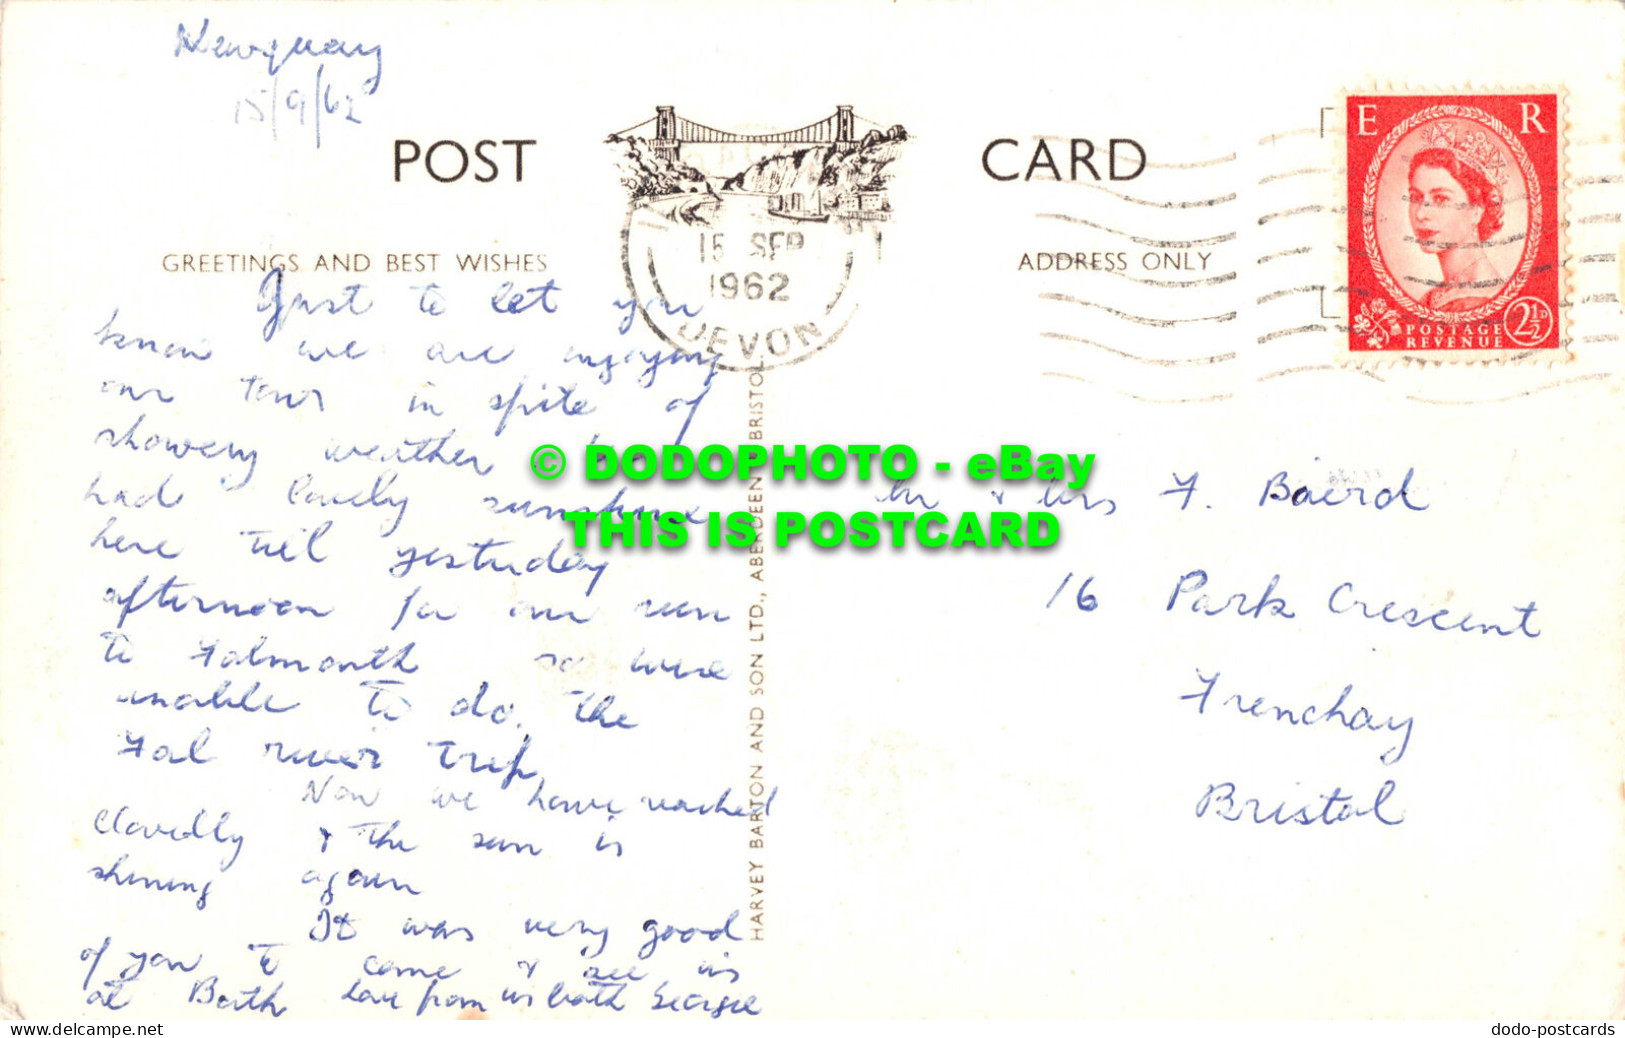 Newquay
15/9/62
POST CARD
GREETINGS AND BEST WISHES
ADDRESS ONLY
15 SEP
1962
DEVON
E R
POSTAGE
REVENUE
2½D
Just to let you
know we are enjoying
our tour in spite of
showery weather
had lovely sunshine
here til yesterday
afternoon for our run
to Falmouth so were
unable to do, the
Fal river trip,
Now we have reached
Clovelly & the sun is
shining again
It was very good
of you to come & see us
at Bath love from us both George
HARVEY BARTON AND SON LTD., ABERDEEN BRISTOL
Mr & Mrs F. Baird
16 Park Crescent
Frenchay
Bristol
© DODOPHOTO - eBay
THIS IS POSTCARD
www.delcampe.net
dodo-postcards